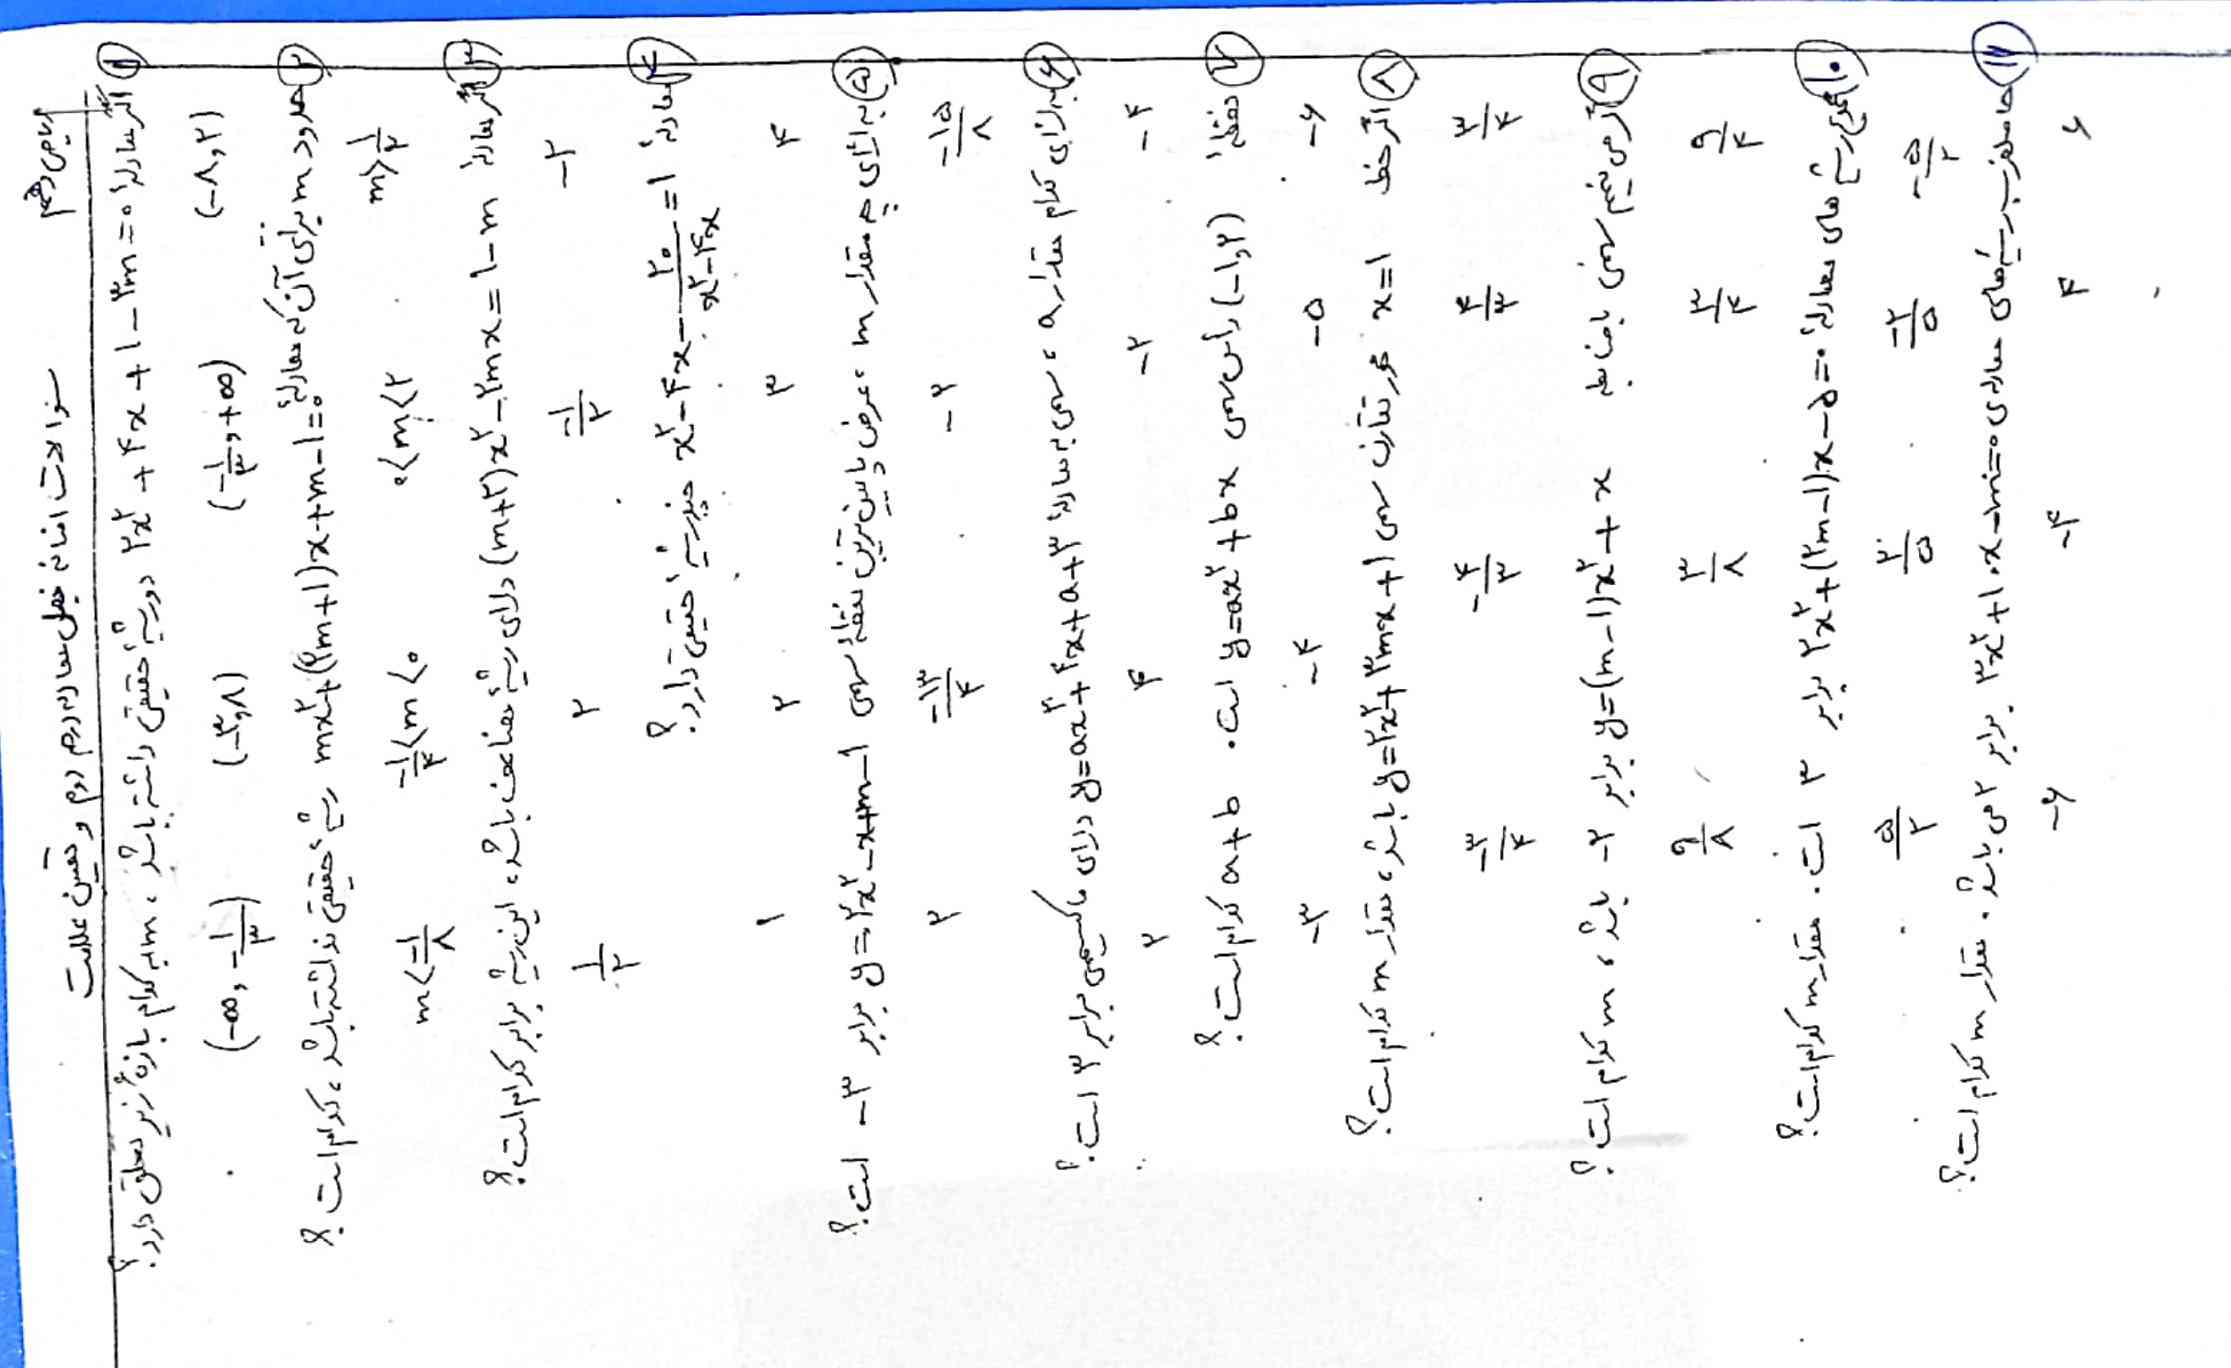 ریاضی دهم
سوالات اضافه فصل معادله درجه دوم و تعیین علامت
۱ اگر معادلهٔ ۲x² + ۴x + ۱ - ۳m = ۰ دو ریشهٔ حقیقی داشته باشد، m به کدام بازهٔ زیر تعلق دارد؟
(-۸, ۲) (-۱/۳, +∞) (-۳, ۸) (-∞, -۱/۳)
۲ حدود m برای آن که معادلهٔ mx² + (۲m+۱)x + m - ۱ = ۰ ریشهٔ حقیقی نداشته باشد، کدام است؟
m > ۱/۲ ۰ < m < ۲ -۱/۴ < m < ۰ m < -۱/۸
۳ اگر معادلهٔ (m+۲)x² - ۲mx = ۱ - m دارای ریشهٔ مضاعف باشد، این ریشه برابر کدام است؟
-۲ -۱/۲ ۲ ۱/۲
۴ معادلهٔ x² - ۴x - ۲۰/(x² - ۴x) = ۱ چند ریشهٔ حقیقی دارد؟
۴ ۳ ۲ ۱
۵ به ازای چه مقدار m، عرض پایین‌ترین نقطهٔ سهمی y = ۲x² - x + m - ۱ برابر -۳ است؟
-۱۵/۸ -۲ -۱۳/۴ ۲
۶ به ازای کدام مقدار a، سهمی به معادلهٔ y = ax² + ۴x + a + ۳ دارای ماکسیممی برابر ۳ است؟
-۴ -۲ ۴ ۲
۷ نقطهٔ (-۱, ۲) رأس سهمی y = ax² + bx است. a + b کدام است؟
-۶ -۵ -۴ -۳
۸ اگر خط x = ۱ محور تقارن سهمی y = ۲x² + ۳mx + ۱ باشد، مقدار m کدام است؟
۳/۴ ۴/۳ -۴/۳ -۳/۴
۹ اگر می‌نیمم سهمی با ضابطه y = (m-۱)x² + x برابر -۲ باشد، m کدام است؟
۹/۴ ۳/۴ ۳/۸ ۹/۸
۱۰ مجموع ریشه‌های معادلهٔ ۲x² + (۲m-۱)x - ۵ = ۰ برابر ۳ است. مقدار m کدام است؟
-۵/۲ -۲/۵ ۲/۵ ۵/۲
۱۱ حاصلضرب ریشه‌های معادله‌ی ۳x² + ۱۰x - m = ۰ برابر ۲ می‌باشد. مقدار m کدام است؟
۶ ۴ -۴ -۶